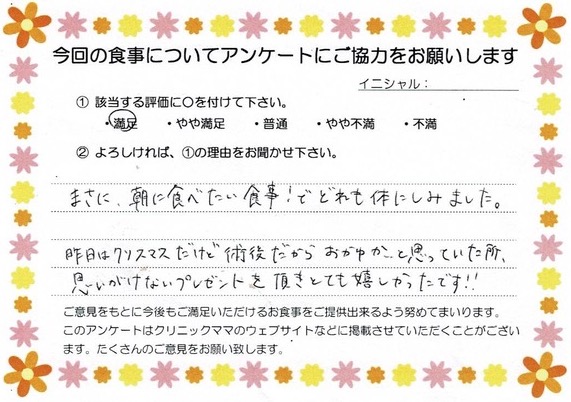 今回の食事についてアンケートにご協力をお願いします
イニシャル：
① 該当する評価に〇を付けて下さい。
・満足 ・やや満足 ・普通 ・やや不満 ・不満
② よろしければ、①の理由をお聞かせ下さい。
まさに、朝に食べたい食事！で どれも体にしみました。
昨日はクリスマスだけど術後だから おかゆか…と思っていた所、
思いがけないプレゼントを頂きとても嬉しかったです!!
ご意見をもとに今後もご満足いただけるお食事をご提供出来るよう努めてまいります。
このアンケートはクリニックママのウェブサイトなどに掲載させていただくことがござい
ます。たくさんのご意見をお願い致します。